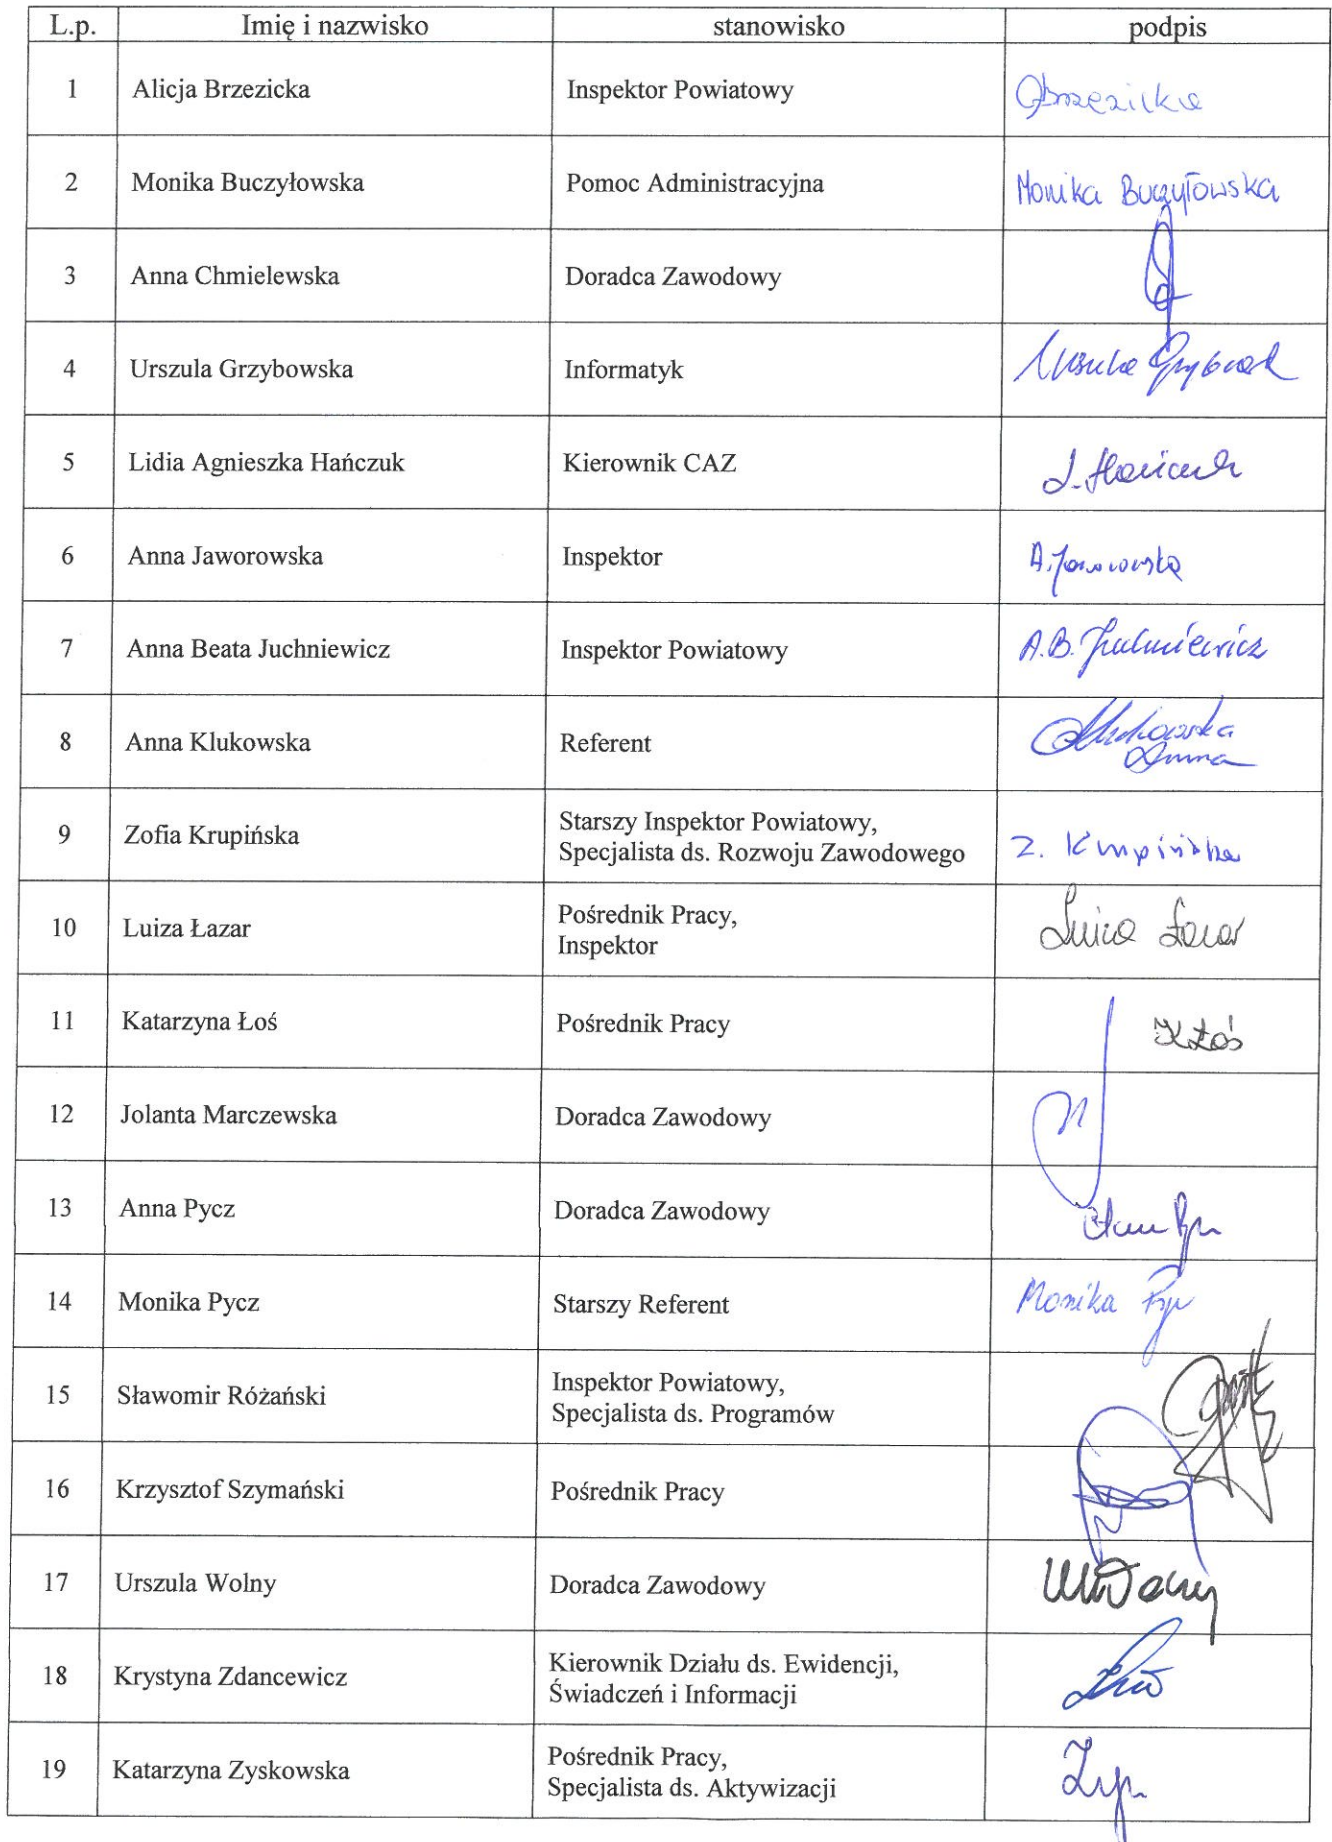 L.p. Imię i nazwisko stanowisko podpis
1 Alicja Brzezicka Inspektor Powiatowy ABrzezicka
2 Monika Buczyłowska Pomoc Administracyjna Monika Buczyłowska
3 Anna Chmielewska Doradca Zawodowy
4 Urszula Grzybowska Informatyk
5 Lidia Agnieszka Hańczuk Kierownik CAZ L. Hańczuk
6 Anna Jaworowska Inspektor A. Jaworowska
7 Anna Beata Juchniewicz Inspektor Powiatowy A.B. Juchniewicz
8 Anna Klukowska Referent Klukowska
Anna
9 Zofia Krupińska Starszy Inspektor Powiatowy,
Specjalista ds. Rozwoju Zawodowego Z. Krupińska
10 Luiza Łazar Pośrednik Pracy,
Inspektor Luiza Łazar
11 Katarzyna Łoś Pośrednik Pracy KŁoś
12 Jolanta Marczewska Doradca Zawodowy
13 Anna Pycz Doradca Zawodowy
14 Monika Pycz Starszy Referent Monika
15 Sławomir Różański Inspektor Powiatowy,
Specjalista ds. Programów
16 Krzysztof Szymański Pośrednik Pracy
17 Urszula Wolny Doradca Zawodowy
18 Krystyna Zdancewicz Kierownik Działu ds. Ewidencji,
Świadczeń i Informacji
19 Katarzyna Zyskowska Pośrednik Pracy,
Specjalista ds. Aktywizacji